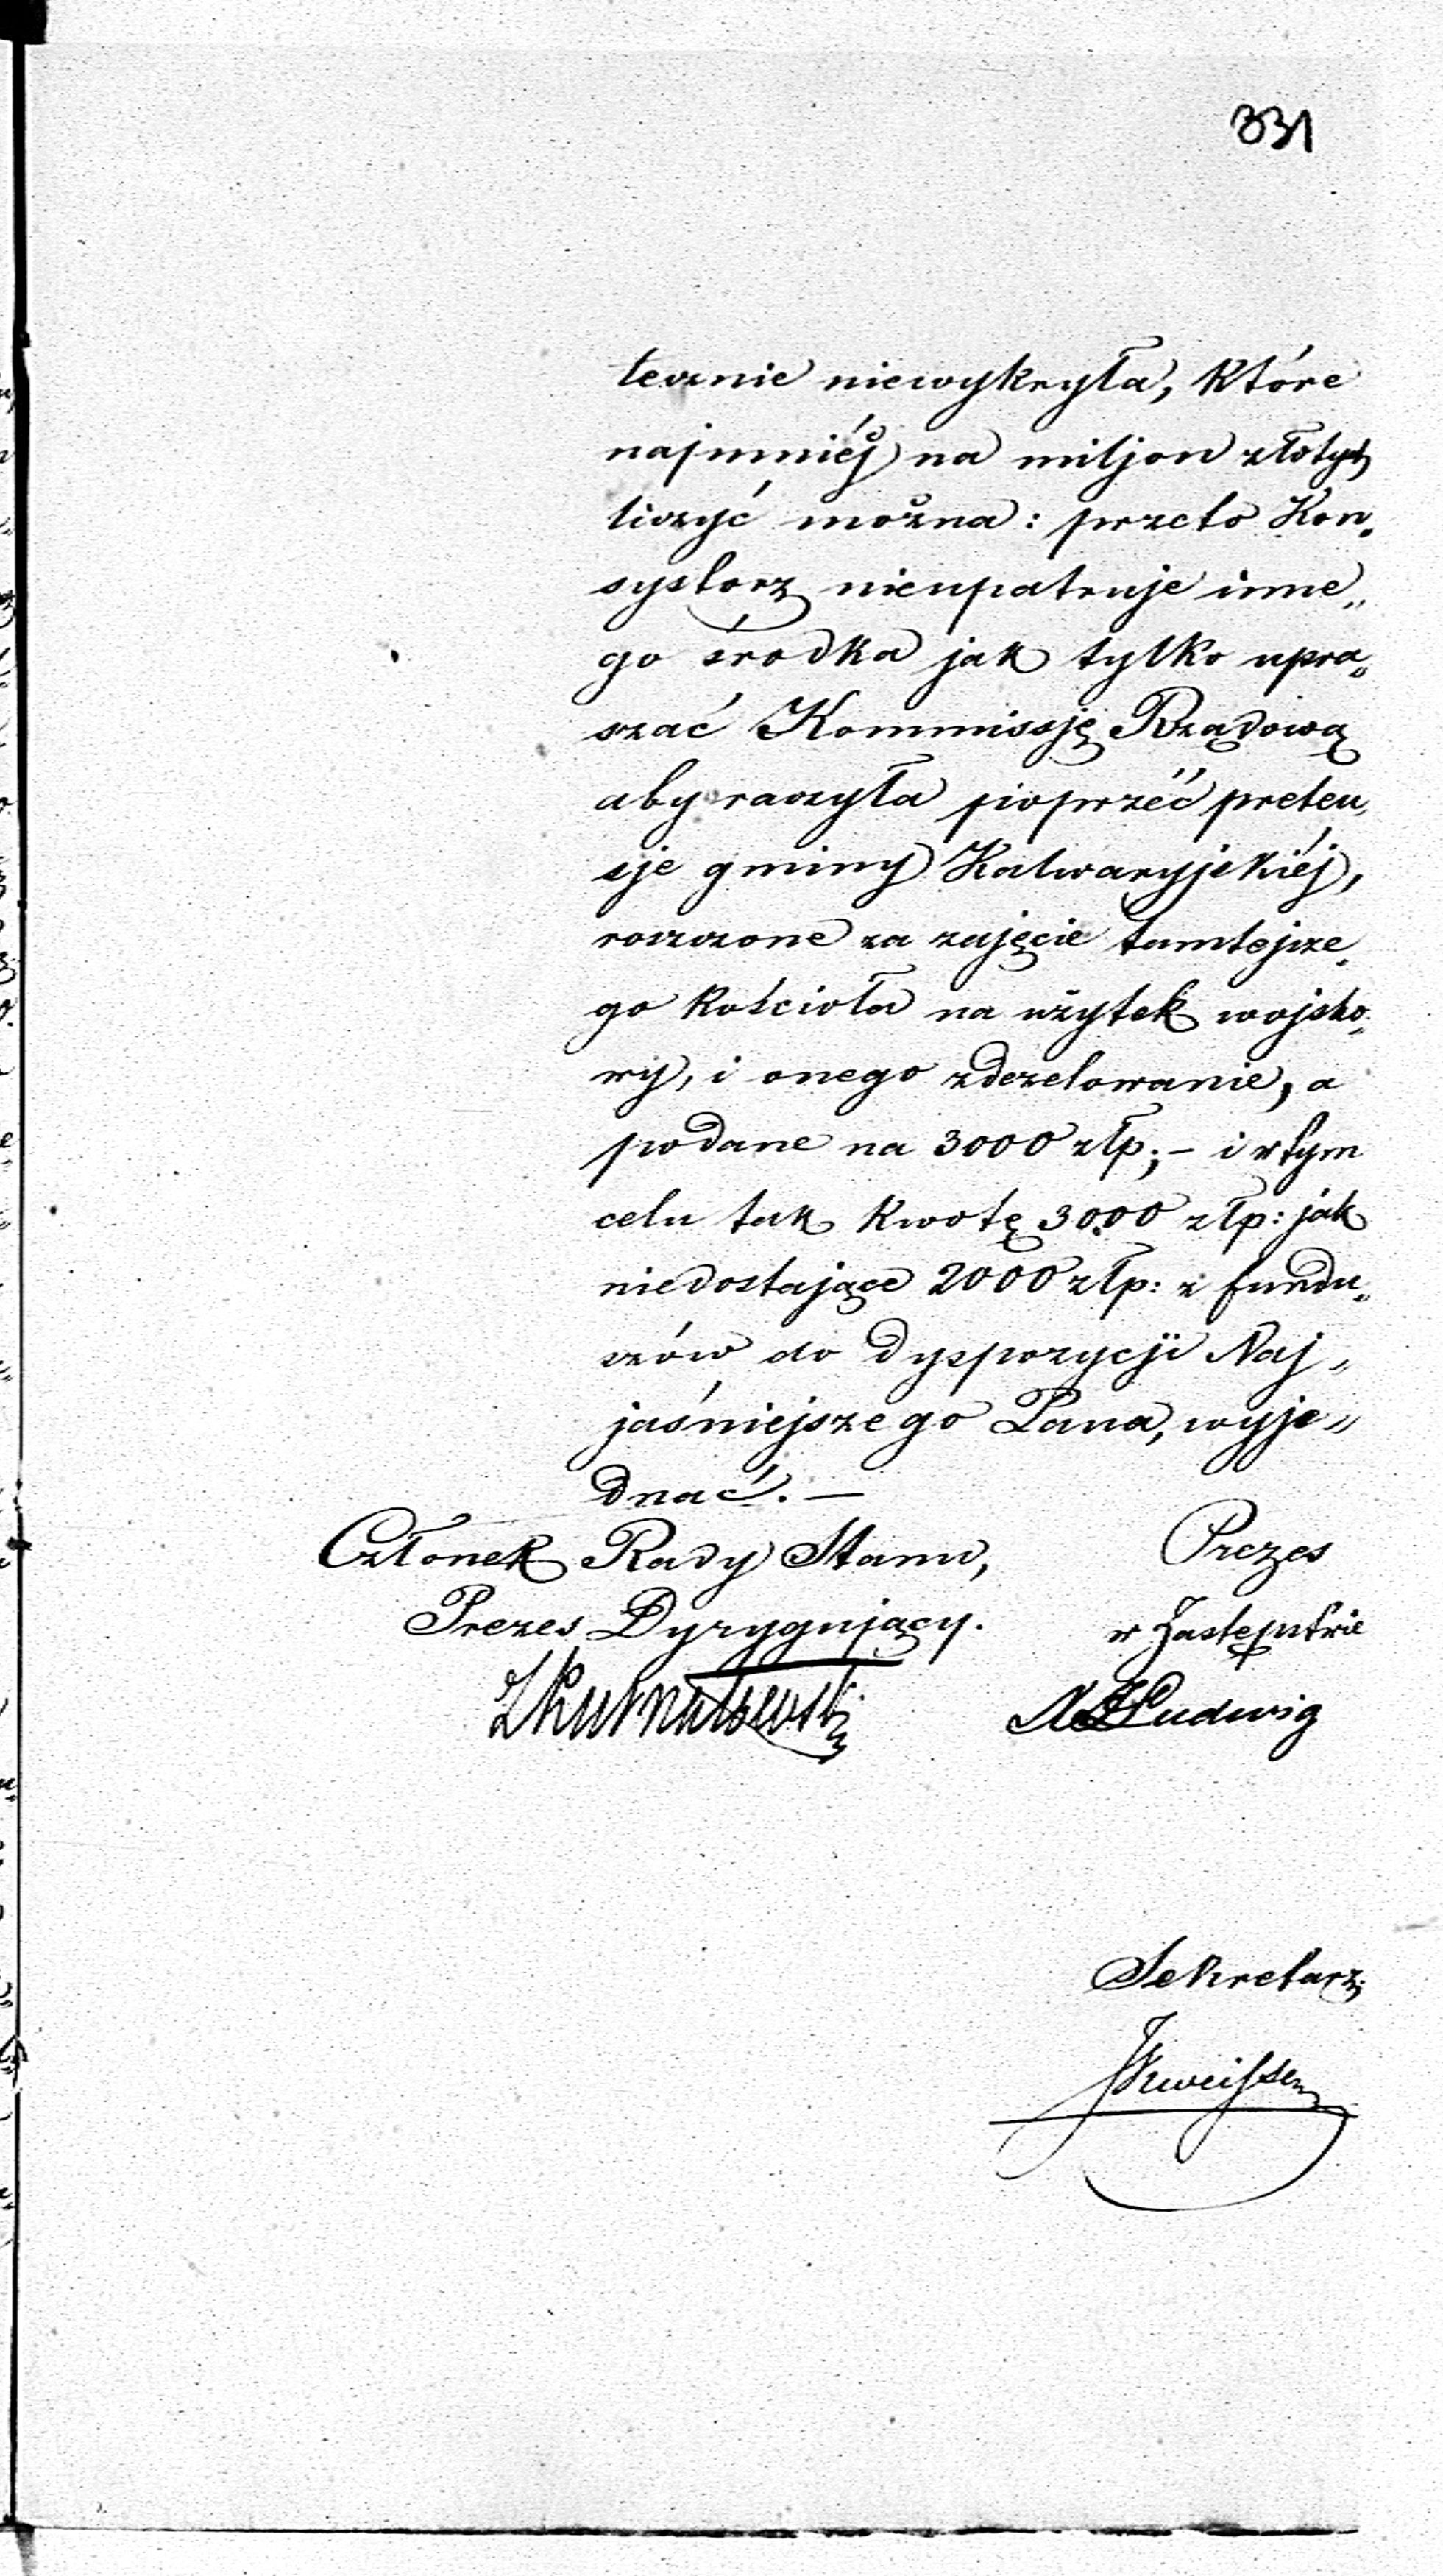 331
tecznie niewykryła, które
najmniéj na miljon złotych
liczyć można: przeto Kon„
systorz nieupatruje inne„
go środka jak tylko upra„
szać Kommissję Rządową
aby raczyła poprzéć preten„
sje gminy Kalwaryjskiéj,
roszczone za zajęcie tamtejsze„
go kościoła na użytek wojsko„
wy, i onego zdezelowanie, a
podane na 3000 złp; – i w tym
celu tak kwotę 3000 złp: jak
niedostające 2000 złp: z fundu„
szów do dyspozycji Naj„
jaśniejszego Pana, wyje„
dnać. —
Członek Rady Stanu,
Prezes Dyrygujący.
Prezes
w Zastępstwie
Ludwig
Sekretarz